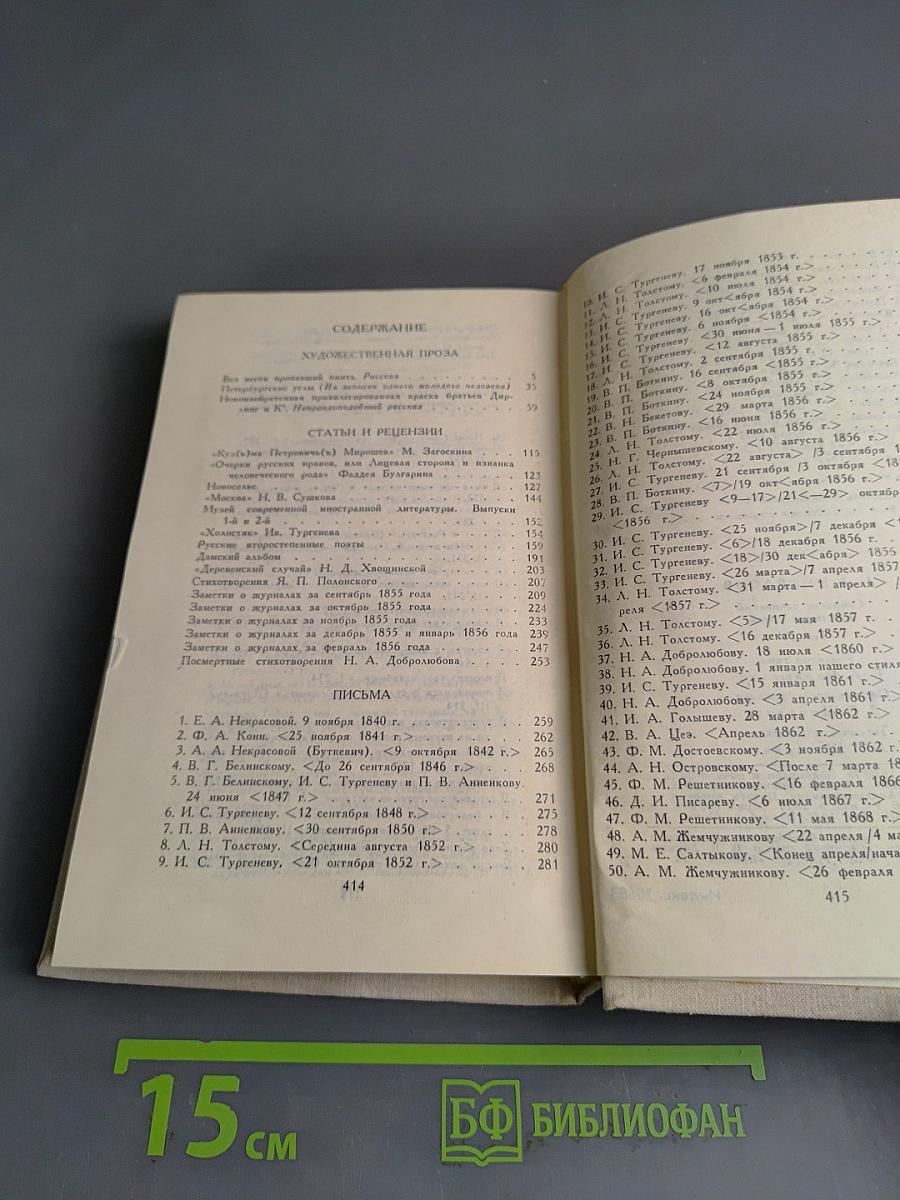 СОДЕРЖАНИЕ
ХУДОЖЕСТВЕННАЯ ПРОЗА
Без вести пропавший пиита. Рассказ . . . . . . . . 5
Петербургские углы (Из записок одного молодого человека) 35
Новоизобретенная привилегированная краска братьев Дир-
линг и К°. Неправдоподобный рассказ . . . . . . . 59
СТАТЬИ И РЕЦЕНЗИИ
«Куз(ь)ма Петрович(ь) Мирошев» М. Загоскина . . . . 115
«Очерки русских нравов, или Лицевая сторона и изнанка
человеческого рода» Фаддея Булгарина . . . . . . 123
Новоселье . . . . . . . . . . . . . . . . . 127
«Москва» Н. В. Сушкова . . . . . . . . . . . . 144
Музей современной иностранной литературы. Выпуски
1-й и 2-й . . . . . . . . . . . . . . . . 152
«Холостяк» Ив. Тургенева . . . . . . . . . . . 154
Русские второстепенные поэты . . . . . . . . . . 159
Дамский альбом . . . . . . . . . . . . . . . 191
«Деревенский случай» Н. Д. Хвощинской . . . . . . 203
Стихотворения Я. П. Полонского . . . . . . . . . 207
Заметки о журналах за сентябрь 1855 года . . . . . . 209
Заметки о журналах за октябрь 1855 года . . . . . . 224
Заметки о журналах за ноябрь 1855 года . . . . . . 233
Заметки о журналах за декабрь 1855 и январь 1856 года 239
Заметки о журналах за февраль 1856 года . . . . . . 247
Посмертные стихотворения Н. А. Добролюбова . . . . 253
ПИСЬМА
1. Е. А. Некрасовой. 9 ноября 1840 г. . . . . . . . 259
2. Ф. А. Кони. <25 ноября 1841 г.> . . . . . . . . 262
3. А. А. Некрасовой (Буткевич). <9 октября 1842 г.> 265
4. В. Г. Белинскому. <До 26 сентября 1846 г.> . . . . 268
5. В. Г. Белинскому, И. С. Тургеневу и П. В. Анненкову.
24 июня <1847 г.> . . . . . . . . . . . . 271
6. И. С. Тургеневу. <12 сентября 1848 г.> . . . . . 275
7. П. В. Анненкову. <30 сентября 1850 г.> . . . . . 278
8. Л. Н. Толстому. <Середина августа 1852 г.> . . . . 280
9. И. С. Тургеневу, <21 октября 1852 г.> . . . . . . 281
414
10. И. С. Тургеневу. 17 ноября 1853 г. . . . . .
11. Л. Н. Толстому. <6 февраля 1854 г.> . . . .
12. Л. Н. Толстому. <10 июля 1854 г.> . . . .
13. И. С. Тургеневу. 9 окт<ября 1854 г.> . . . .
14. И. С. Тургеневу. 16 окт<ября 1854 г.> . . . .
15. И. С. Тургеневу. 6 ноября <1854 г.> . . . .
16. И. С. Тургеневу. <30 июня — 1 июля 1855 г.> . .
17. И. С. Тургеневу. <12 августа 1855 г.> . . . .
18. Л. Н. Толстому. 2 сентября 1855 г. . . . .
19. В. П. Боткину. 16 сентября <1855 г.> . . . .
20. В. П. Боткину. <8 октября 1855 г.> . . . .
21. В. П. Боткину. <24 ноября 1855 г.> . . . .
22. В. Н. Бекетову. <29 марта 1856 г.> . . . .
23. В. П. Боткину. <16 июня 1856 г.> . . . .
24. Л. Н. Толстому. <22 июля 1856 г.> . . . .
25. Н. Г. Чернышевскому. <10 августа 1856 г.> . .
26. Л. Н. Толстому. <22 августа> /3 сентября 1
27. И. С. Тургеневу. 21 сентября /3 октября <18
28. В. П. Боткину. <7>/19 окт<ября 1856 г.> . . .
29. И. С. Тургеневу <9—17>/21<—29> октябр
<1856 г.> . . . . . . .
30. И. С. Тургеневу. <25 ноября>/7 декабря <1
31. И. С. Тургеневу. <6>/18 декабря 1856 г. .
32. И. С. Тургеневу. <18>/30 дек<абря> 1856
33. И. С. Тургеневу. <26 марта>/7 апреля 1857
34. Л. Н. Толстому. <31 марта — 1 апреля> /
реля <1857 г.> . . . . . . .
35. Л. Н. Толстому. <5>/17 мая 1857 г. . .
36. Л. Н. Толстому. <16 декабря 1857 г.> . .
37. Н. А. Добролюбову. 18 июля <1860 г.> . .
38. Н. А. Добролюбову. 1 января нашего стиля
39. И. С. Тургеневу. <15 января 1861 г.> . .
40. Н. А. Добролюбову. <3 апреля 1861 г.> .
41. И. А. Голышеву. 28 марта <1862 г.> . .
42. В. А. Цеэ. <Апрель 1862 г.> . . . .
43. Ф. М. Достоевскому. <3 ноября 1862 г.
44. А. Н. Островскому. <После 7 марта 18
45. Ф. М. Решетникову. <16 февраля 1866
46. Д. И. Писареву. <6 июля 1867 г.> . .
47. Ф. М. Решетникову. <11 мая 1868 г.>
48. А. М. Жемчужникову <22 апреля /4 ма
49. М. Е. Салтыкову. <Конец апреля/нача
50. А. М. Жемчужникову. <26 февраля
415
15 см
БФ БИБЛИОФАН